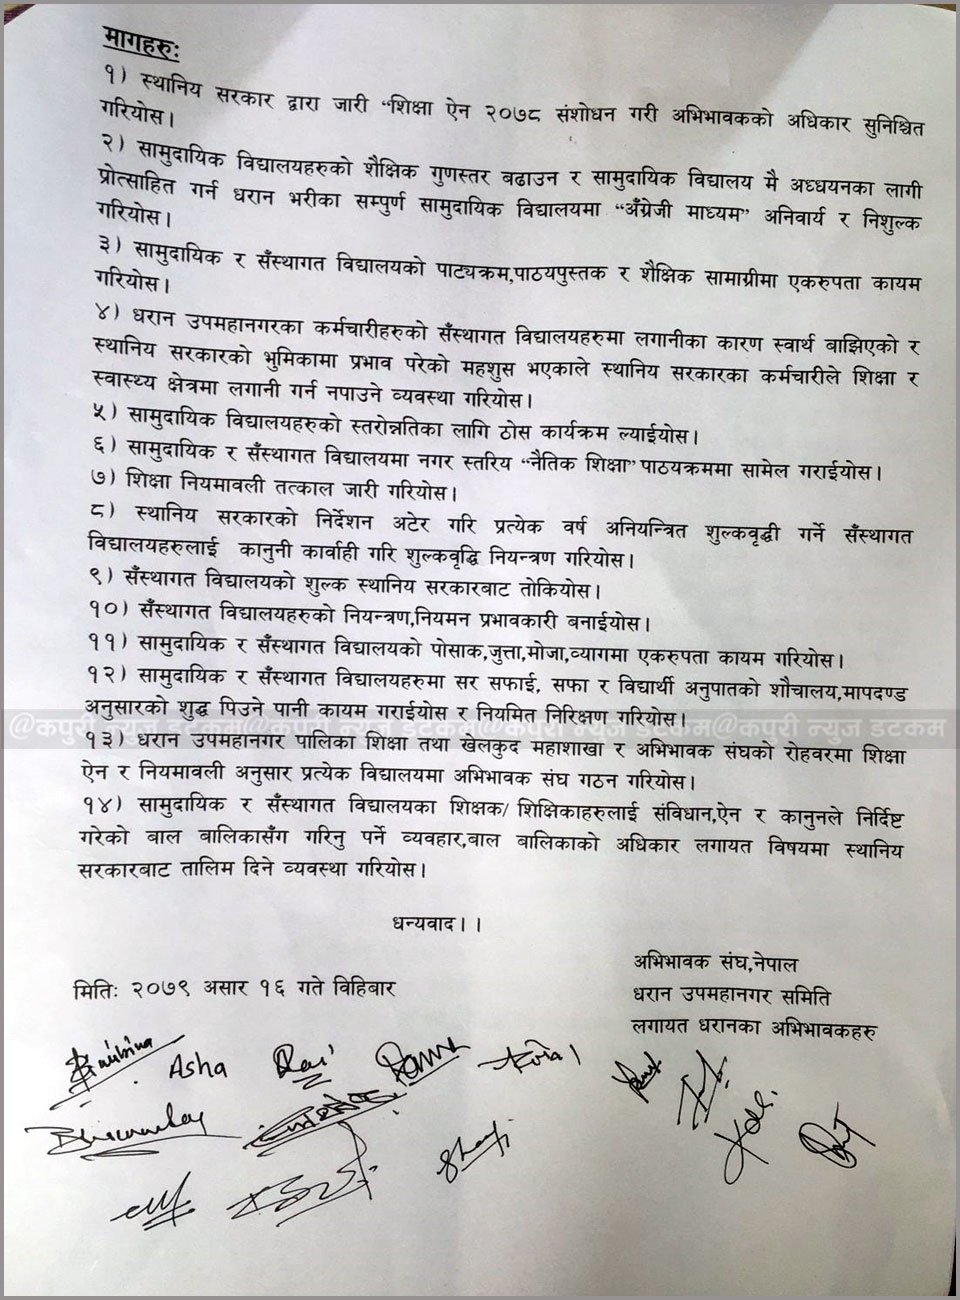 मागहरुः
१) स्थानिय सरकार द्वारा जारी “शिक्षा ऐन २०७८ संशोधन गरी अभिभावकको अधिकार सुनिश्चित
गरियोस।
२) सामुदायिक विद्यालयहरुको शैक्षिक गुणस्तर बढाउन र सामुदायिक विद्यालय मै अध्धयनका लागी
प्रोत्साहित गर्न धरान भरीका सम्पुर्ण सामुदायिक विद्यालयमा “अँग्रेजी माध्यम” अनिवार्य र निशुल्क
गरियोस।
३) सामुदायिक र सँस्थागत विद्यालयको पाट्यक्रम,पाठयपुस्तक र शैक्षिक सामाग्रीमा एकरुपता कायम
गरियोस।
४) धरान उपमहानगरका कर्मचारीहरुको सँस्थागत विद्यालयहरुमा लगानीका कारण स्वार्थ बाझिएको र
स्थानिय सरकारको भुमिकामा प्रभाव परेको महशुस भएकाले स्थानिय सरकारका कर्मचारीले शिक्षा र
स्वास्थ्य क्षेत्रमा लगानी गर्न नपाउने व्यवस्था गरियोस।
५) सामुदायिक विद्यालयहरुको स्तरोन्नतिका लागि ठोस कार्यक्रम ल्याईयोस।
६) सामुदायिक र सँस्थागत विद्यालयमा नगर स्तरिय “नैतिक शिक्षा” पाठयक्रममा सामेल गराईयोस।
७) शिक्षा नियमावली तत्काल जारी गरियोस।
८) स्थानिय सरकारको निर्देशन अटेर गरि प्रत्येक वर्ष अनियन्त्रित शुल्कवृद्धी गर्ने सँस्थागत
विद्यालयहरुलाई कानुनी कार्वाही गरि शुल्कवृद्धि नियन्त्रण गरियोस।
९) सँस्थागत विद्यालयको शुल्क स्थानिय सरकारबाट तोकियोस।
१०) सँस्थागत विद्यालयहरुको नियन्त्रण,नियमन प्रभावकारी बनाईयोस।
११) सामुदायिक र सँस्थागत विद्यालयको पोसाक,जुत्ता,मोजा,व्यागमा एकरुपता कायम गरियोस।
१२) सामुदायिक र सँस्थागत विद्यालयहरुमा सर सफाई, सफा र विद्यार्थी अनुपातको शौचालय,मापदण्ड
अनुसारको शुद्ध पिउने पानी कायम गराईयोस र नियमित निरिक्षण गरियोस।
@कपुरी न्युज डटकम@कपुरी न्युज डटकम@कपुरी न्युज डटकम@कपुरी न्युज डटकम
१३) धरान उपमहानगर पालिका शिक्षा तथा खेलकुद महाशाखा र अभिभावक संघको रोहवरमा शिक्षा
ऐन र नियमावली अनुसार प्रत्येक विद्यालयमा अभिभावक संघ गठन गरियोस।
१४) सामुदायिक र सँस्थागत विद्यालयका शिक्षक/ शिक्षिकाहरुलाई संविधान,ऐन र कानुनले निर्दिष्ट
गरेको बाल बालिकासँग गरिनु पर्ने व्यवहार,बाल बालिकाको अधिकार लगायत विषयमा स्थानिय
सरकारबाट तालिम दिने व्यवस्था गरियोस।
धन्यवाद।।
अभिभावक संघ,नेपाल
मितिः २०७९ असार १६ गते विहिबार
धरान उपमहानगर समिति
लगायत धरानका अभिभावकहरु
Asha Rai